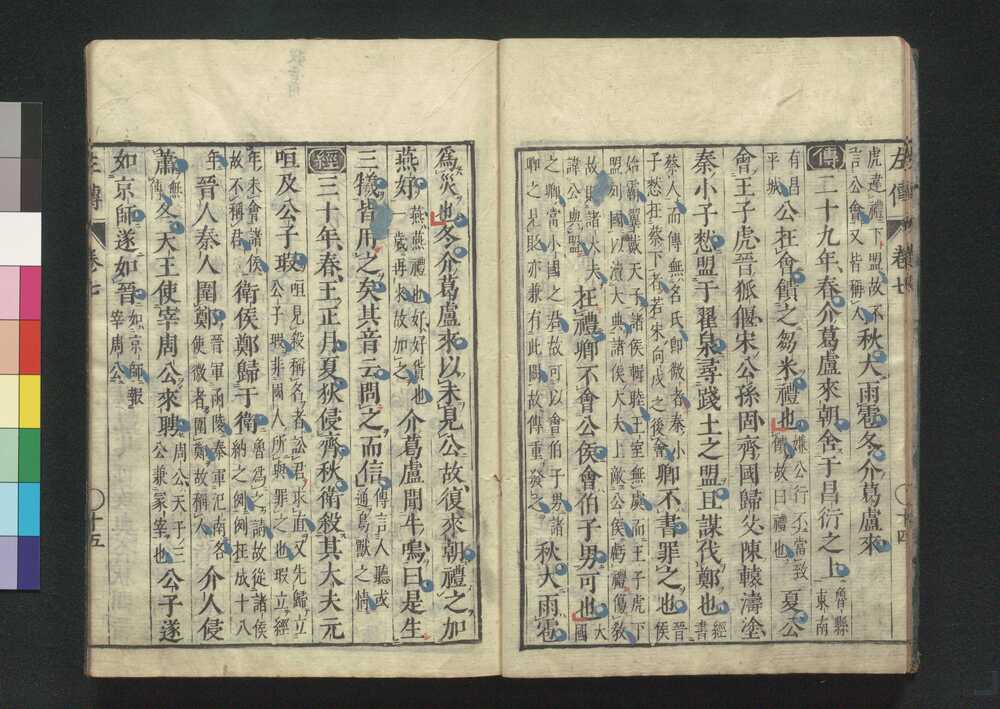 左傳 卷七 十四
虎違禮下盟故不言公會又皆稱人秋大雨雹冬介葛盧來
傳二十九年春介葛盧來朝舍于昌衍之上魯縣東南
有昌平城公在會饋之芻米禮也嫌公行不當致饋故曰禮也夏公
會王子虎晉狐偃宋公孫固齊國歸父陳轅濤塗
秦小子憖盟于翟泉尋踐土之盟且謀伐鄭也經書
蔡人而傳無名氏即微者秦小子憖在蔡下者若宋向戌之後會卿不書罪之也晉侯
始霸翼戴天子諸侯輯睦王室無虞而王子虎下盟列國以瀆大典諸侯大夫上敵公侯虧禮傷敎
故貶諸大夫諱公與盟在禮卿不會公侯會伯子男可也大國
之卿當小國之君故可以會伯子男諸卿之見貶亦兼有此闕故傳重發之秋大雨雹
爲災也冬介葛盧來以未見公故復來朝禮之加
燕好燕燕禮也好好貨也一歲再來故加之介葛盧聞牛鳴曰是生
三犧皆用之矣其音云問之而信傳言人聽或通鳥獸之情
經三十年春王正月夏狄侵齊秋衛殺其大夫元
咺及公子瑕咺見殺稱名者訟君求直又先歸立公子瑕非國人所與罪之也瑕立經
年未會諸侯故不稱君衛侯鄭歸于衛魯爲之請故從諸侯納之例例在成十八
年晉人秦人圍鄭晉軍函陵秦軍氾南各使微者圍鄭故稱人介人侵
蕭無傳冬天王使宰周公來聘周公天子三公兼冢宰也公子遂
如京師遂如晉如京師報宰周公
左傳 卷七 十五